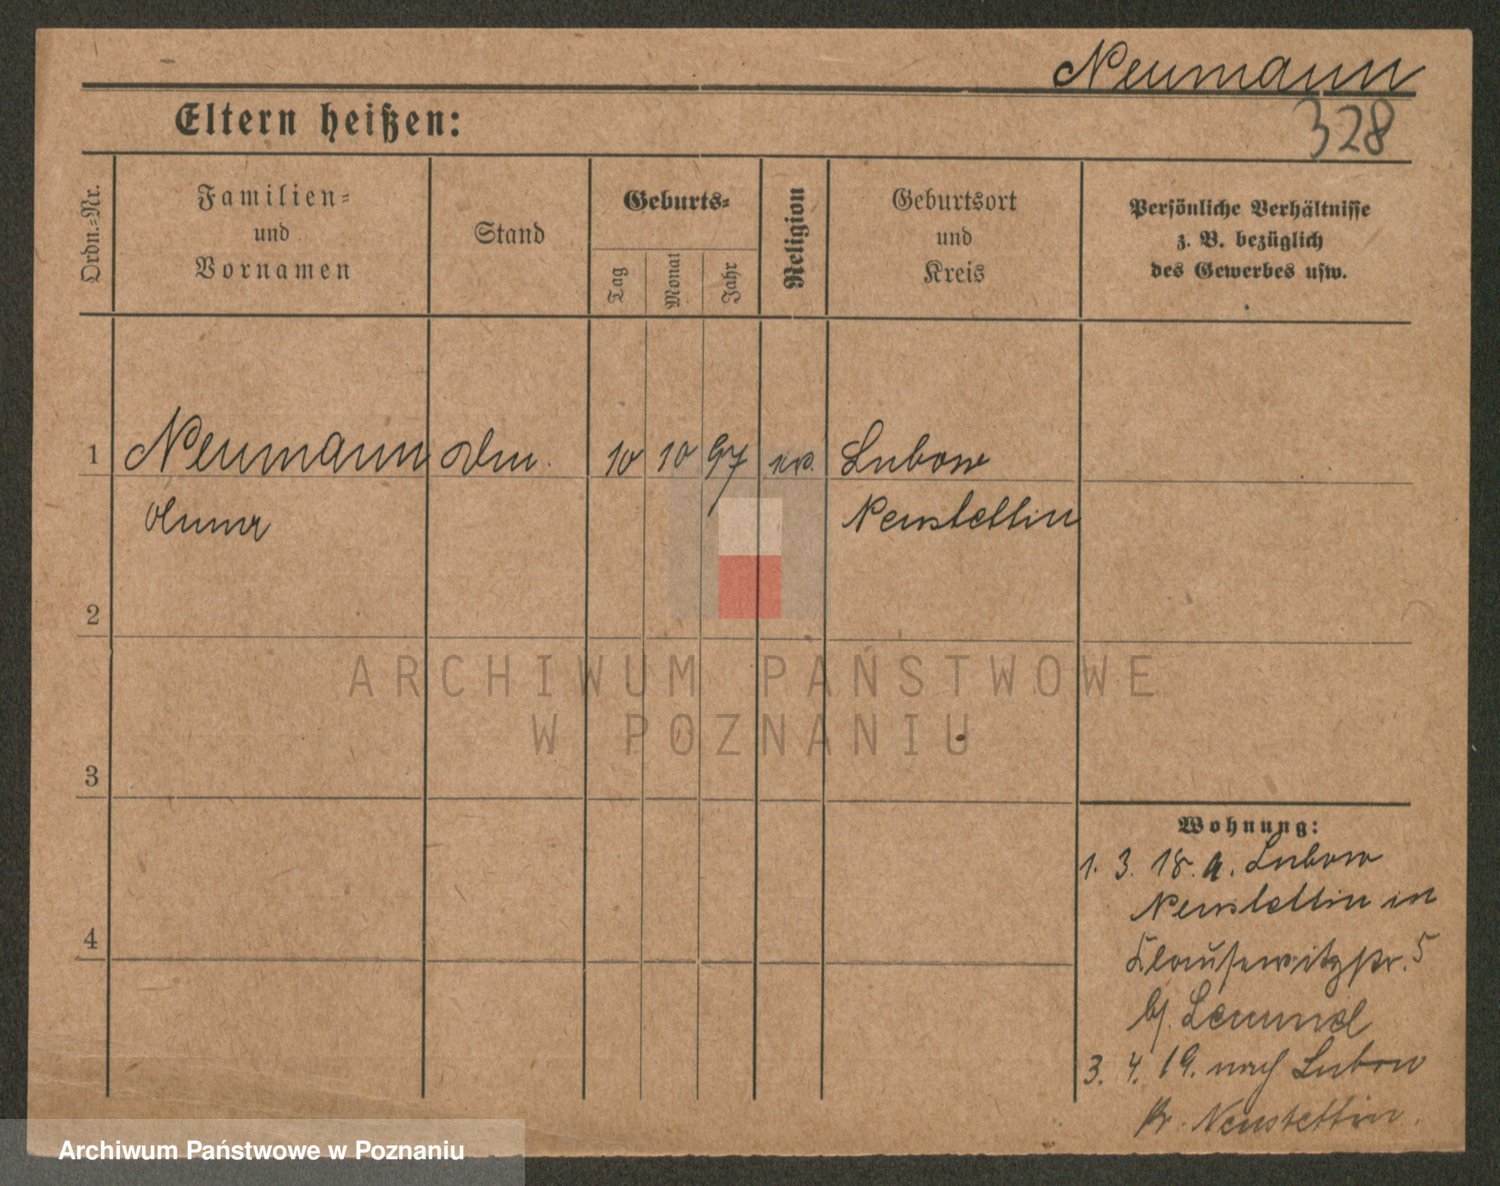 Neumann
328
Eltern heißen:
Ordn.-Nr.
Familien-
und
Vornamen
Stand
Geburts-
Tag
Monat
Jahr
Religion
Geburtsort
und
Kreis
Persönliche Verhältnisse
z. B. bezüglich
des Gewerbes usw.
1 Neumann 10 10 97 Lubow
Anna Neustettin
2
3
4
Wohnung:
1. 3. 18. a. Lubow
Neustettin in
Klausewitzstr. 5
b/.
3. 4. 19. nach Lubow
Kr. Neustettin.
ARCHIWUM PAŃSTWOWE
W POZNANIU
Archiwum Państwowe w Poznaniu